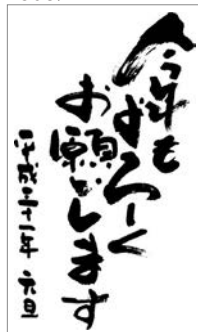 今年も
よろしく
お願いします
平成二十一年 元旦